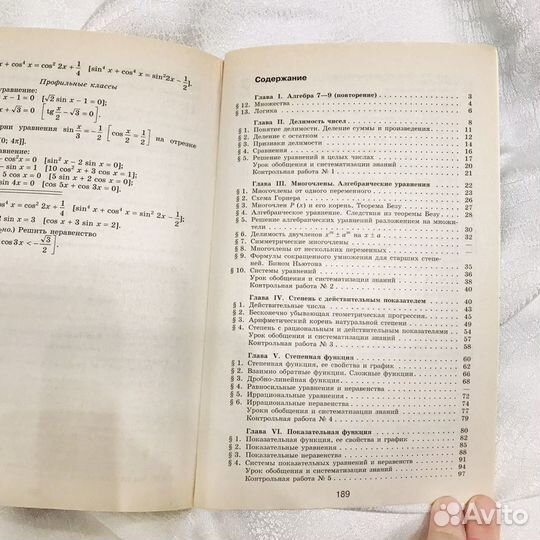 x + cos⁴ x = cos² 2x + 1/4 [sin⁴ x + cos⁴ x = sin² 2x − 1/2].
Профильные классы
уравнение:
x − 1 = 0 [√2 sin x − 1 = 0];
x + √3 = 0 [tg x/2 − √3 = 0].
рни уравнения sin x/3 = −1/2 [cos x/2 = 1/2] на отрезке
[0; 4π].
внение:
− cos² x = 0 [sin² x − 2 sin x = 0];
n x = 11 [10 cos² x + 3 cos x = 1];
5 cos x = 0 [5 sin x + 2 cos x = 0];
sin 4x = 0 [cos 5x + cos 3x = 0].
cos⁴ x = cos² 2x + 1/4 [sin⁴ x + cos⁴ x = sin² 2x − 1/2];
s x = 3 [cos x + 3 sin x = 2].
но.) Решить неравенство
cos 3x < −√3/2].
Содержание
Глава I. Алгебра 7—9 (повторение) 3
§ 12. Множества 4
§ 13. Логика 6
Глава II. Делимость чисел 8
§ 1. Понятие делимости. Деление суммы и произведения. 11
§ 2. Деление с остатком
§ 3. Признаки делимости
§ 4. Сравнения
§ 5. Решение уравнений в целых числах
Урок обобщения и систематизации знаний 20
Контрольная работа № 1 21
Глава III. Многочлены. Алгебраические уравнения 22
§ 1. Многочлены от одного переменного
§ 2. Схема Горнера 26
§ 3. Многочлен P (x) и его корень. Теорема Безу
§ 4. Алгебраическое уравнение. Следствия из теоремы Безу 28
§ 5. Решение алгебраических уравнений разложением на множи-
тели 30
§ 6. Делимость двучленов xᵐ ± aᵐ на x ± a 32
§ 7. Симметрические многочлены
§ 8. Многочлены от нескольких переменных
§ 9. Формулы сокращенного умножения для старших степе-
ней. Бином Ньютона 35
§ 10. Системы уравнений 36
Урок обобщения и систематизации знаний 38
Контрольная работа № 2 40
Глава IV. Степень с действительным показателем 40
§ 1. Действительные числа
§ 2. Бесконечно убывающая геометрическая прогрессия
§ 3. Арифметический корень натуральной степени
§ 4. Степень с рациональным и действительными показателями 54
Урок обобщения и систематизации знаний
Контрольная работа № 3 58
Глава V. Степенная функция 60
§ 1. Степенная функция, ее свойства и график 62
§ 2. Взаимно обратные функции. Сложные функции 66
§ 3. Дробно-линейная функция 68
§ 4. Равносильные уравнения и неравенства
§ 5. Иррациональные уравнения 72
§ 6. Иррациональные неравенства 74
Уроки обобщения и систематизации знаний 77
Контрольная работа № 4 79
Глава VI. Показательная функция 80
§ 1. Показательная функция, ее свойства и график 82
§ 2. Показательные уравнения 85
§ 3. Показательные неравенства 88
§ 4. Системы показательных уравнений и неравенств 91
Урок обобщения и систематизации знаний 94
Контрольная работа № 5 97
189
Avito